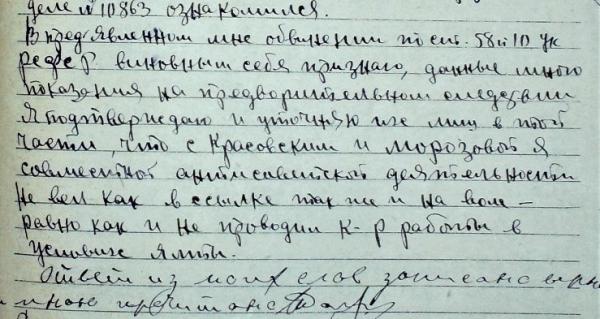 деле № 10863 ознакомился.
В пред'явленном мне обвинении по ст. 58 п 10 УК
РСФСР виновным себя признаю, данные мною
показания на предворительном следствии
Я подтверждаю и уточняю их лиш в той
части, что с Красовским и Морозовой я
совместной антисоветской деятельности
не вел как в ссылке так же и на воле –
равно как и не проводил К-р работы в
условиях Ялты.
Ответ из моих слов записано верно
и мною прочитано